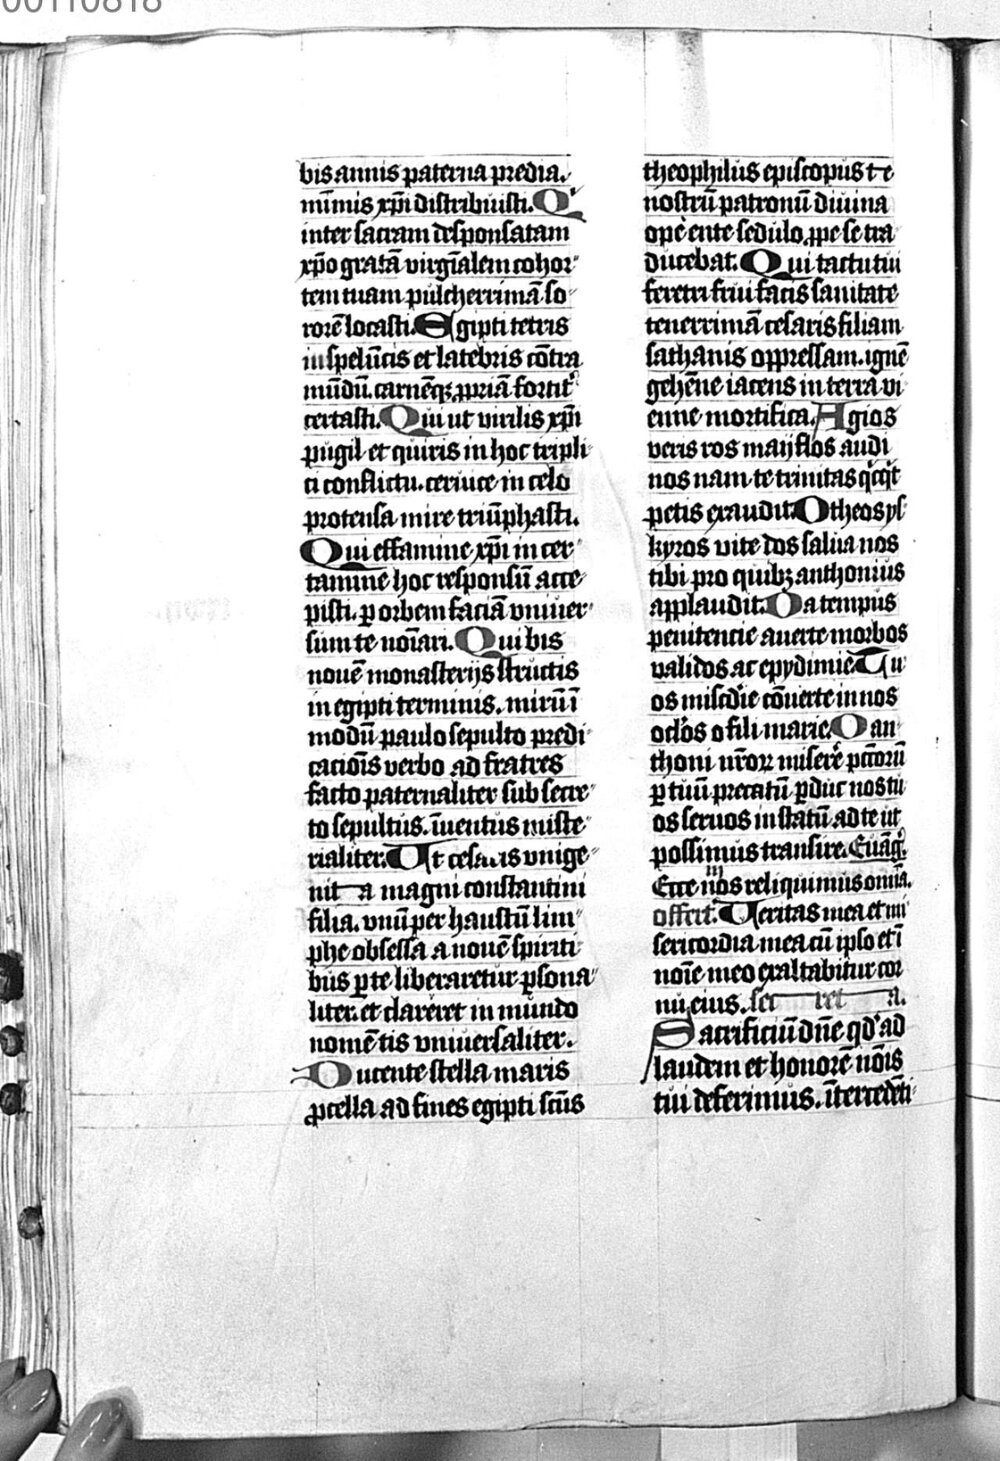 00110818
bis annis paterna predia.
mīmis xp̄i distribuisti. Qⁱ
inter sacram desponsatam
xp̄o gratā virgīalem cohor-
tem tuam pulcherrimā so-
rorē locasti. Egipti tetris
in spelūcis et latebris cōtra
mūdū. carnēqꝫ ꝓpriā fortit᷑
certasti. Qui ut virilis xp̄i
pugil et quiris in hoc tripli
ci conflictu. ceruice in celo
protensa mire triūphasti.
Qui effamine xp̄i in cer-
tamine hoc responsū acce-
pisti. ꝑ orbem faciā vniuer-
sum te noīari. Qui bis
nouē monasterijs structis
in egipti terminis. mirū ī
modū paulo sepulto predi-
cacioīs verbo ad fratres
facto paternaliter sub secre-
to sepultus. īuentus miste-
rialiter. Ut cesaris vnige-
nita magni constantini
filia. vnū per haustū lim-
phe obsessa a nouē spiriti
bus ꝑ te liberaretur ꝑsona-
liter. et clareret in mundo
nomē tis vniuersaliter.
Ducente stella maris
ꝓcella ad fines egipti scūs
theophilus episcopus te
nostrū patronū diuina
ope ente sedulo ꝓpe se tra
ducebat. Qui tactu tui
feretri frui facis sanitate
tenerrimā cesaris filiam
sathanis oppressam. ignē
gehēne iacens in terra vi
enne mortifica. Agios
veris ros maij flos audi
nos nam te trinitas qͥcqͥt
petis exaudit. O theos ys
kyros vite dos salua nos
tibi pro quibꝫ anthonius
applaudit. Da tempus
penitencie auerte morbos
validos ac epydimie. Tu
os miscd̓ie cōuerte in nos
oclōs o fili marie. O an
thoni n̄roꝝ miserē pctōrū
ꝑ tuū precatū ꝑduc nos tu
os seruos in statū ad te ut
possimus transire. Euāg̃.
Ecce nos reliquimus omīa.
offert. Ueritas mea et mi
sericordia mea cū ipso et ī
noīe meo exaltabitur cor
nu eius. secreta.
Sacrificiū dn̄e qd̓ ad
laudem et honorē nōis
tui deferimus. īntercedēti